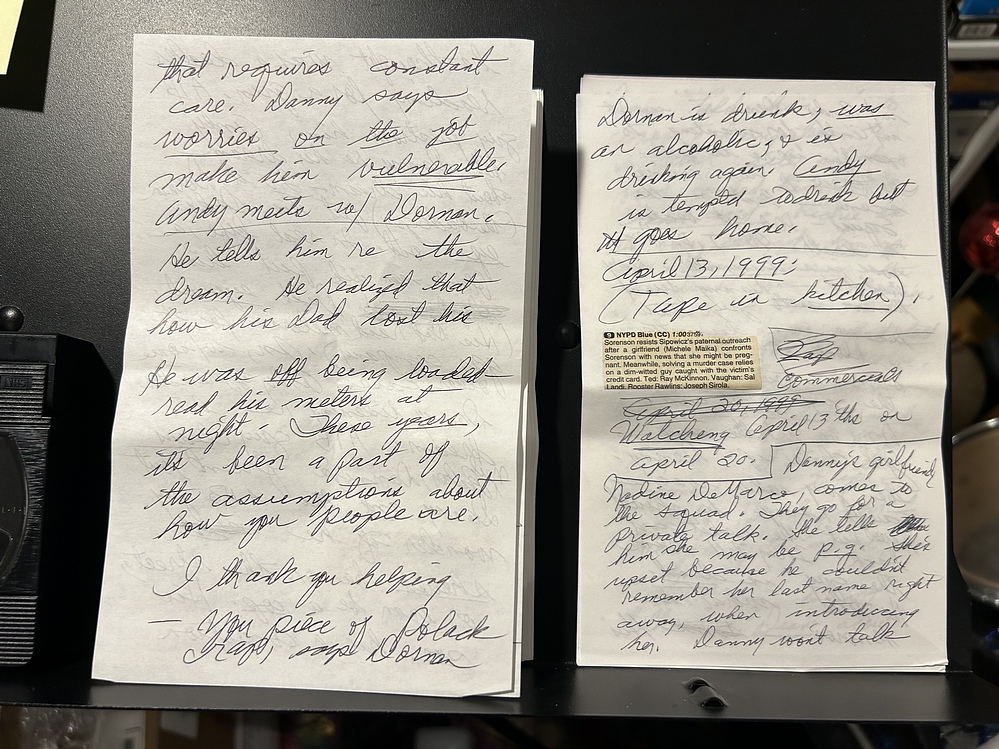 that requires constant
care. Danny says
worries on the job
make him vulnerable.
Andy meets w/ Dornan.
He tells him re the
dream. He realized that
how his Dad lost his
He was off being loaded
read his meters at
night. These years,
it's been a part of
the assumptions about
how you people are.
I thank you helping
— You piece of Polack
crap, says Dornan
Dornan is drunk, was
an alcoholic, & is
drinking again. Andy
is tempted to drink but
goes home.
April 13, 1999:
(Tape in kitchen).
9 NYPD Blue (CC) 1:00
Sorenson resists Sipowicz's paternal outreach
after a girlfriend (Michele Maika) confronts
Sorenson with news that she might be preg-
nant. Meanwhile, solving a murder case relies
on a dim-witted guy caught with the victim's
credit card. Ted: Ray McKinnon. Vaughan: Sal
Landi. Rooster Rawlins: Joseph Sirola.
Zap
Commercials
April 20, 1999
Watching April 13th's on
April 20.
Danny's girlfriend
Nadine DeMarco, comes to
the squad. They go for a
private talk. She tells
him she may be p.g. She's
upset because he couldn't
remember her last name right
away, when introducing
her. Danny won't talk